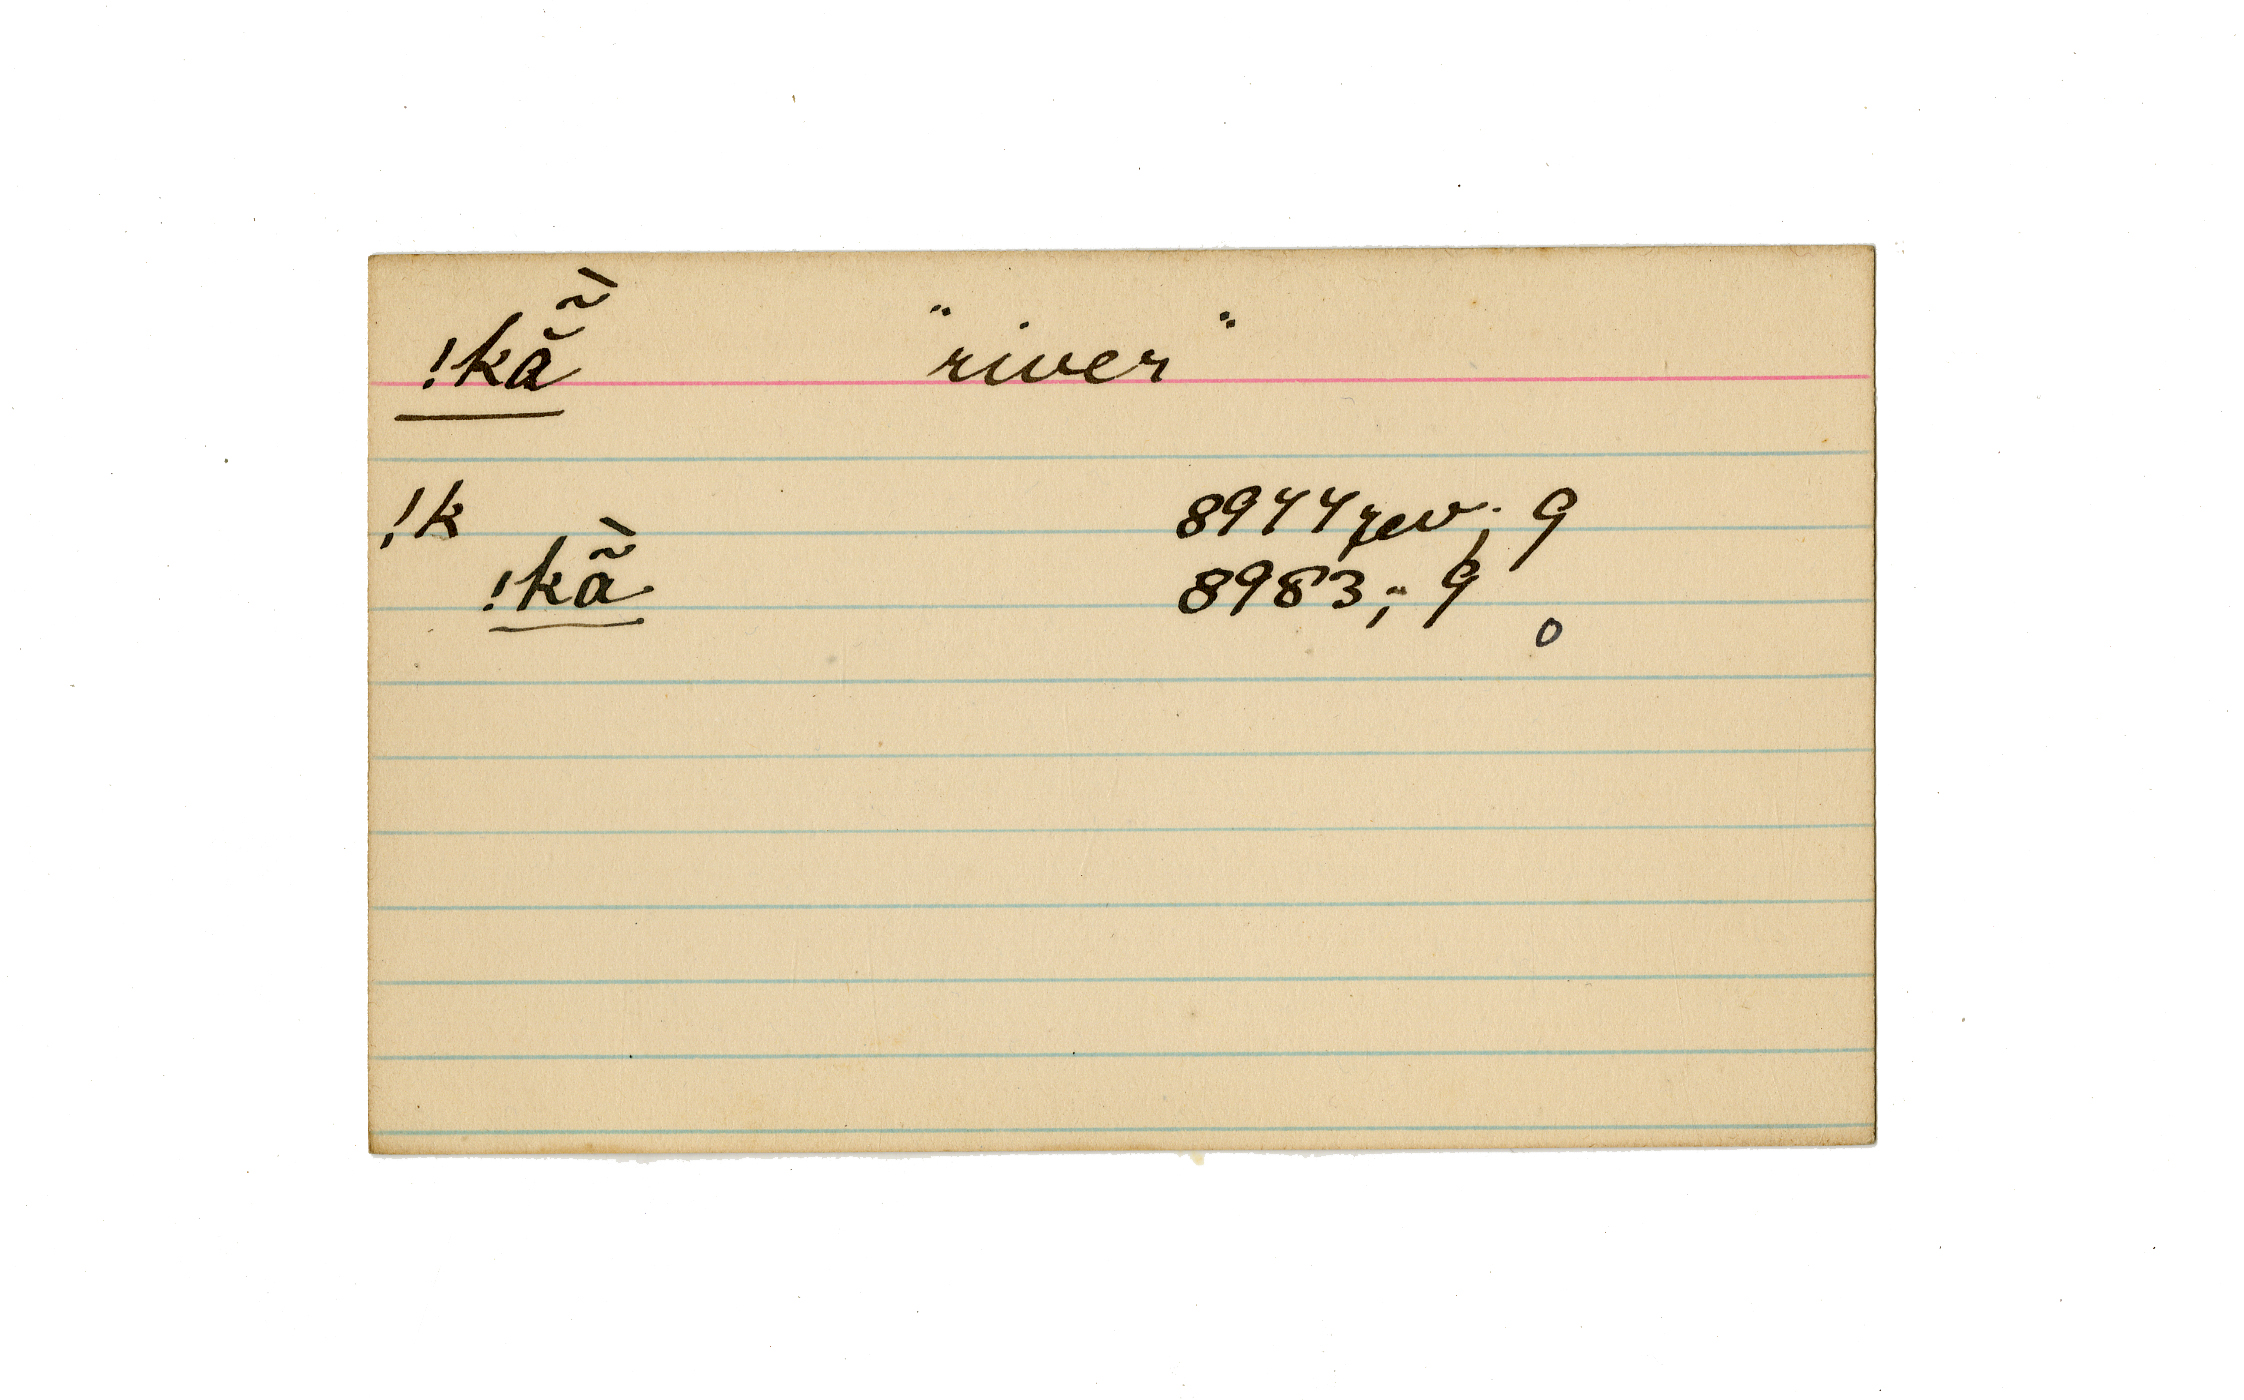 !kẵ̀ "river"
!k 8944 rev; 9
!kã̀ 8983; 9
0